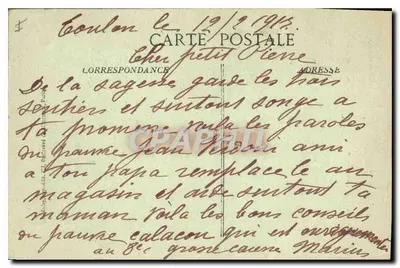 Toulon le 19/2 1913.
CARTE POSTALE
Cher petit Pierre
CORRESPONDANCE ADRESSE
De la sagesse garde les trois
sentiers et surtout songe a
ta maman voila les paroles
du pauvre Jean ami
a ton papa remplace le au
magasin et aide surtout ta
maman Voila les bons conseils
du pauvre calacon qui est
au 8e grosse caisse Marius